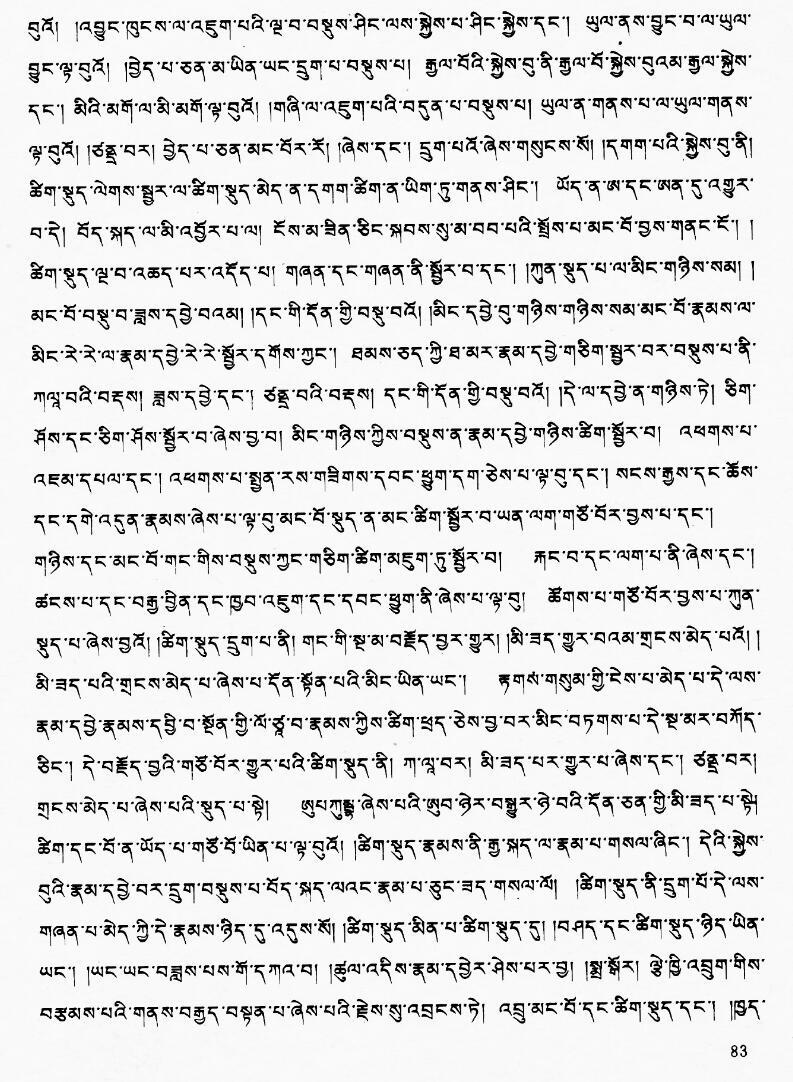 བུའོ། །འབྱུང་ཁུངས་ལ་འཇུག་པའི་ལྔ་བ་བསྡུས་ཤིང་ལས་སྐྱེས་པ་ཤིང་སྐྱེས་དང༌། ཡུལ་ནས་བྱུང་བ་ལ་ཡུལ་
བྱུང་ལྟ་བུའོ། །བྱེད་པ་ཅན་མ་ཡིན་ཡང་དྲུག་པ་བསྡུས་པ། རྒྱལ་པོའི་སྐྱེས་བུ་ནི་རྒྱལ་པོ་སྐྱེས་བུའམ་རྒྱལ་སྐྱེས་
དང༌། མིའི་མགོ་ལ་མི་མགོ་ལྟ་བུའོ། །གཞི་ལ་འཇུག་པའི་བདུན་པ་བསྡུས་པ། ཡུལ་ན་གནས་པ་ལ་ཡུལ་གནས་
ལྟ་བུའོ། །ཙནྡྲ་བར། བྱེད་པ་ཅན་མང་པོར་རོ། །ཞེས་དང༌། དྲུག་པའོ་ཞེས་གསུངས་སོ། །དགག་པའི་སྐྱེས་བུ་ནི།
ཚིག་སྡུད་ལེགས་སྦྱར་ལ་ཚིག་སྡུད་མེད་ན་དགག་ཚིག་ན་ཡིག་ཏུ་གནས་ཤིང༌། ཡོད་ན་ཨ་དང་ཨན་དུ་འགྱུར་
བ་དེ། བོད་སྐད་ལ་མི་འབྱོར་པ་ལ། ངོས་མ་ཟིན་ཅིང་སྐབས་སུ་མ་བབ་པའི་སྤྲོས་པ་མང་པོ་བྱས་གནང་ངོ༌། །
ཚིག་སྡུད་ལྔ་བ་འཆད་པར་འདོད་པ། གཞན་དང་གཞན་ནི་སྦྱོར་བ་དང༌། །ཀུན་སྡུད་པ་ལ་མིང་གཉིས་སམ། །
མང་པོ་བསྡུ་བ་ཟླས་དབྱེ་བའམ། །དང་གི་དོན་གྱི་བསྡུ་བའོ། །མིང་དབྱེ་བུ་གཉིས་གཉིས་སམ་མང་པོ་རྣམས་ལ་
མིང་རེ་རེ་ལ་རྣམ་དབྱེ་རེ་རེ་སྦྱོར་དགོས་ཀྱང༌། ཐམས་ཅད་ཀྱི་ཐ་མར་རྣམ་དབྱེ་གཅིག་སྦྱར་བར་བསྡུས་པ་ནི་
ཀ་ལཱ་བའི་བརྡས། ཟླས་དབྱེ་དང༌། ཙནྡྲ་བའི་བརྡས། དང་གི་དོན་གྱི་བསྡུ་བའོ། །དེ་ལ་དབྱེ་ན་གཉིས་ཏེ། ཅིག་
ཤོས་དང་ཅིག་ཤོས་སྦྱོར་བ་ཞེས་བྱ་བ། མིང་གཉིས་ཀྱིས་བསྡུས་ན་རྣམ་དབྱེ་གཉིས་ཚིག་སྦྱོར་བ། འཕགས་པ་
འཇམ་དཔལ་དང༌། འཕགས་པ་སྤྱན་རས་གཟིགས་དབང་ཕྱུག་དག་ཅེས་པ་ལྟ་བུ་དང༌། སངས་རྒྱས་དང་ཆོས་
དང་དགེ་འདུན་རྣམས་ཞེས་པ་ལྟ་བུ་མང་པོ་སྡུད་ན་མང་ཚིག་སྦྱོར་བ་ཡན་ལག་གཙོ་བོར་བྱས་པ་དང༌།
གཉིས་དང་མང་པོ་གང་གིས་བསྡུས་ཀྱང་གཅིག་ཚིག་མཇུག་ཏུ་སྦྱོར་བ། རྐང་བ་དང་ལག་པ་ནི་ཞེས་དང༌།
ཚངས་པ་དང་བརྒྱ་བྱིན་དང་ཁྱབ་འཇུག་དང་དབང་ཕྱུག་ནི་ཞེས་པ་ལྟ་བུ། ཚོགས་པ་གཙོ་བོར་བྱས་པ་ཀུན་
སྡུད་པ་ཞེས་བྱའོ། །ཚིག་སྡུད་དྲུག་པ་ནི། གང་གི་སྔ་མ་བརྗོད་བྱར་གྱུར། །མི་ཟད་གྱུར་བའམ་གྲངས་མེད་པའོ། །
མི་ཟད་པའི་གྲངས་མེད་པ་ཞེས་པ་དོན་སྟོན་པའི་མིང་ཡིན་ཡང༌། རྟགས་གསུམ་གྱི་ངེས་པ་མེད་པ་དེ་ལས་
རྣམ་དབྱེ་རྣམས་དབྱི་བ་སྔོན་གྱི་ལོ་ཙཱ་བ་རྣམས་ཀྱིས་ཚིག་ཕྲད་ཅེས་བྱ་བར་མིང་བཏགས་པ་དེ་སྔ་མར་བཀོད་
ཅིང༌། དེ་བརྗོད་བྱའི་གཙོ་བོར་གྱུར་པའི་ཚིག་སྡུད་ནི། ཀ་ལཱ་བར། མི་ཟད་པར་གྱུར་པ་ཞེས་དང༌། ཙནྡྲ་བར།
གྲངས་མེད་པ་ཞེས་པའི་སྡུད་པ་སྟེ། ཨུཔཀུམྦྷ་ཞེས་པའི་ཨུབ་ཉེར་བསྒྱུར་ཉེ་བའི་དོན་ཅན་གྱི་མི་ཟད་པ་སྟེ།
ཚིག་དང་པོ་ན་ཡོད་པ་གཙོ་བོ་ཡིན་པ་ལྟ་བུའོ། །ཚིག་སྡུད་རྣམས་ནི་རྒྱ་སྐད་ལ་རྣམ་པ་གསལ་ཞིང༌། དེའི་སྐྱེས་
བུའི་རྣམ་དབྱེ་བར་དྲུག་བསྡུས་པ་བོད་སྐད་ལའང་རྣམ་པ་ཅུང་ཟད་གསལ་ལོ། །ཚིག་སྡུད་ནི་དྲུག་པོ་དེ་ལས་
གཞན་པ་མེད་ཀྱི་དེ་རྣམས་ཉིད་དུ་འདུས་སོ། །ཚིག་སྡུད་མིན་པ་ཚིག་སྡུད་དུ། །བཤད་དང་ཚིག་སྡུད་ཉིད་ཡིན་
ཡང༌། །ཡང་ཡང་བཟླས་པས་གོ་དཀའ་བ། །ཚུལ་འདིས་རྣམ་དབྱེར་ཤེས་པར་བྱ། །སྨྲ་སྒོར། ལྕེ་ཁྱི་འབྲུག་གིས་
བརྩམས་པའི་གནས་བརྒྱད་བསྟན་པ་ཞེས་པའི་རྗེས་སུ་འབྲངས་ཏེ། འབྲུ་མང་པོ་དང་ཚིག་སྡུད་དང༌། །ཁྱད་
83